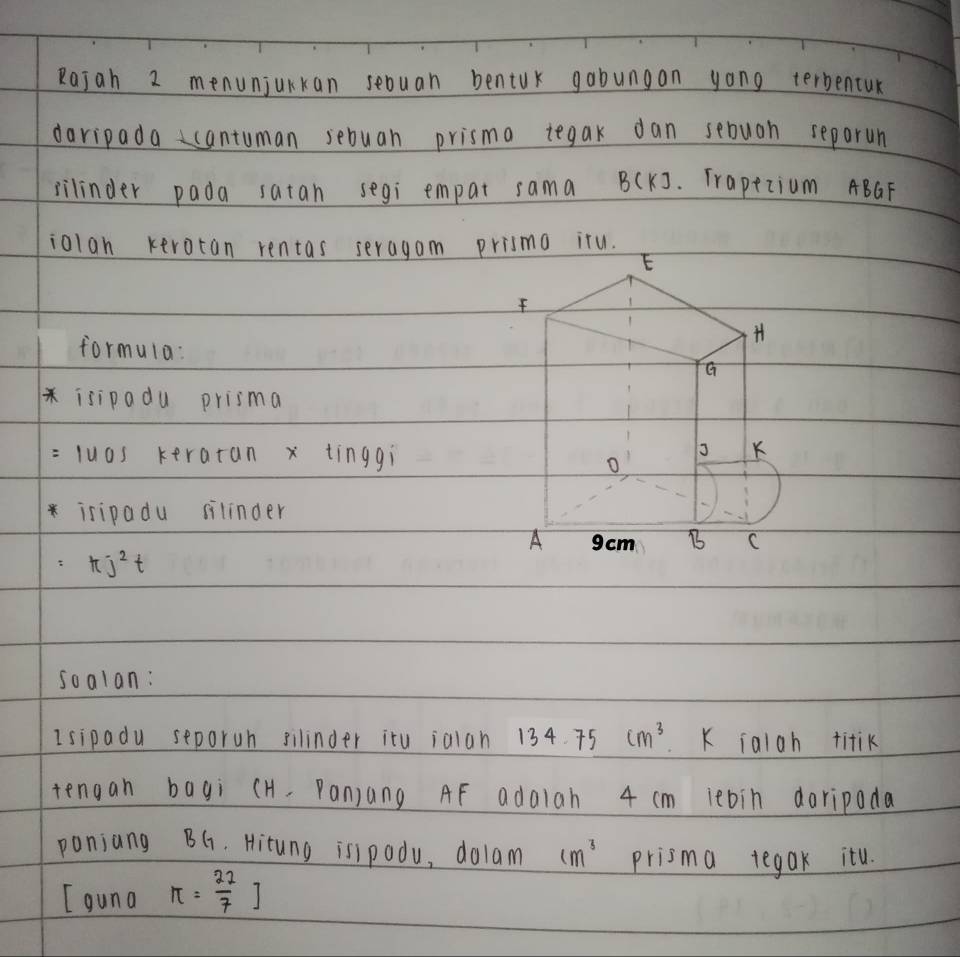 Rajah 2 menunjukkan sebuah bentuk gabungan yang terbentuk
daripada cantuman sebuah prisma tegak dan sebuah separuh
silinder pada satah segi empat sama BCKJ. Trapezium ABGF
ialah keratan rentas seragam prisma itu.
E
F
H
formula:
G
* isipadu prisma
= luas keratan x tinggi
J K
D
* isipadu silinder
A 9cm B C
= πj²t
Soalan:
Isipadu separuh silinder itu ialah 134.75 cm³. K ialah titik
tengah bagi CH. Panjang AF adalah 4 cm lebih daripada
panjang BG. Hitung isipadu, dalam cm³ prisma tegak itu.
[guna π = 22/7]